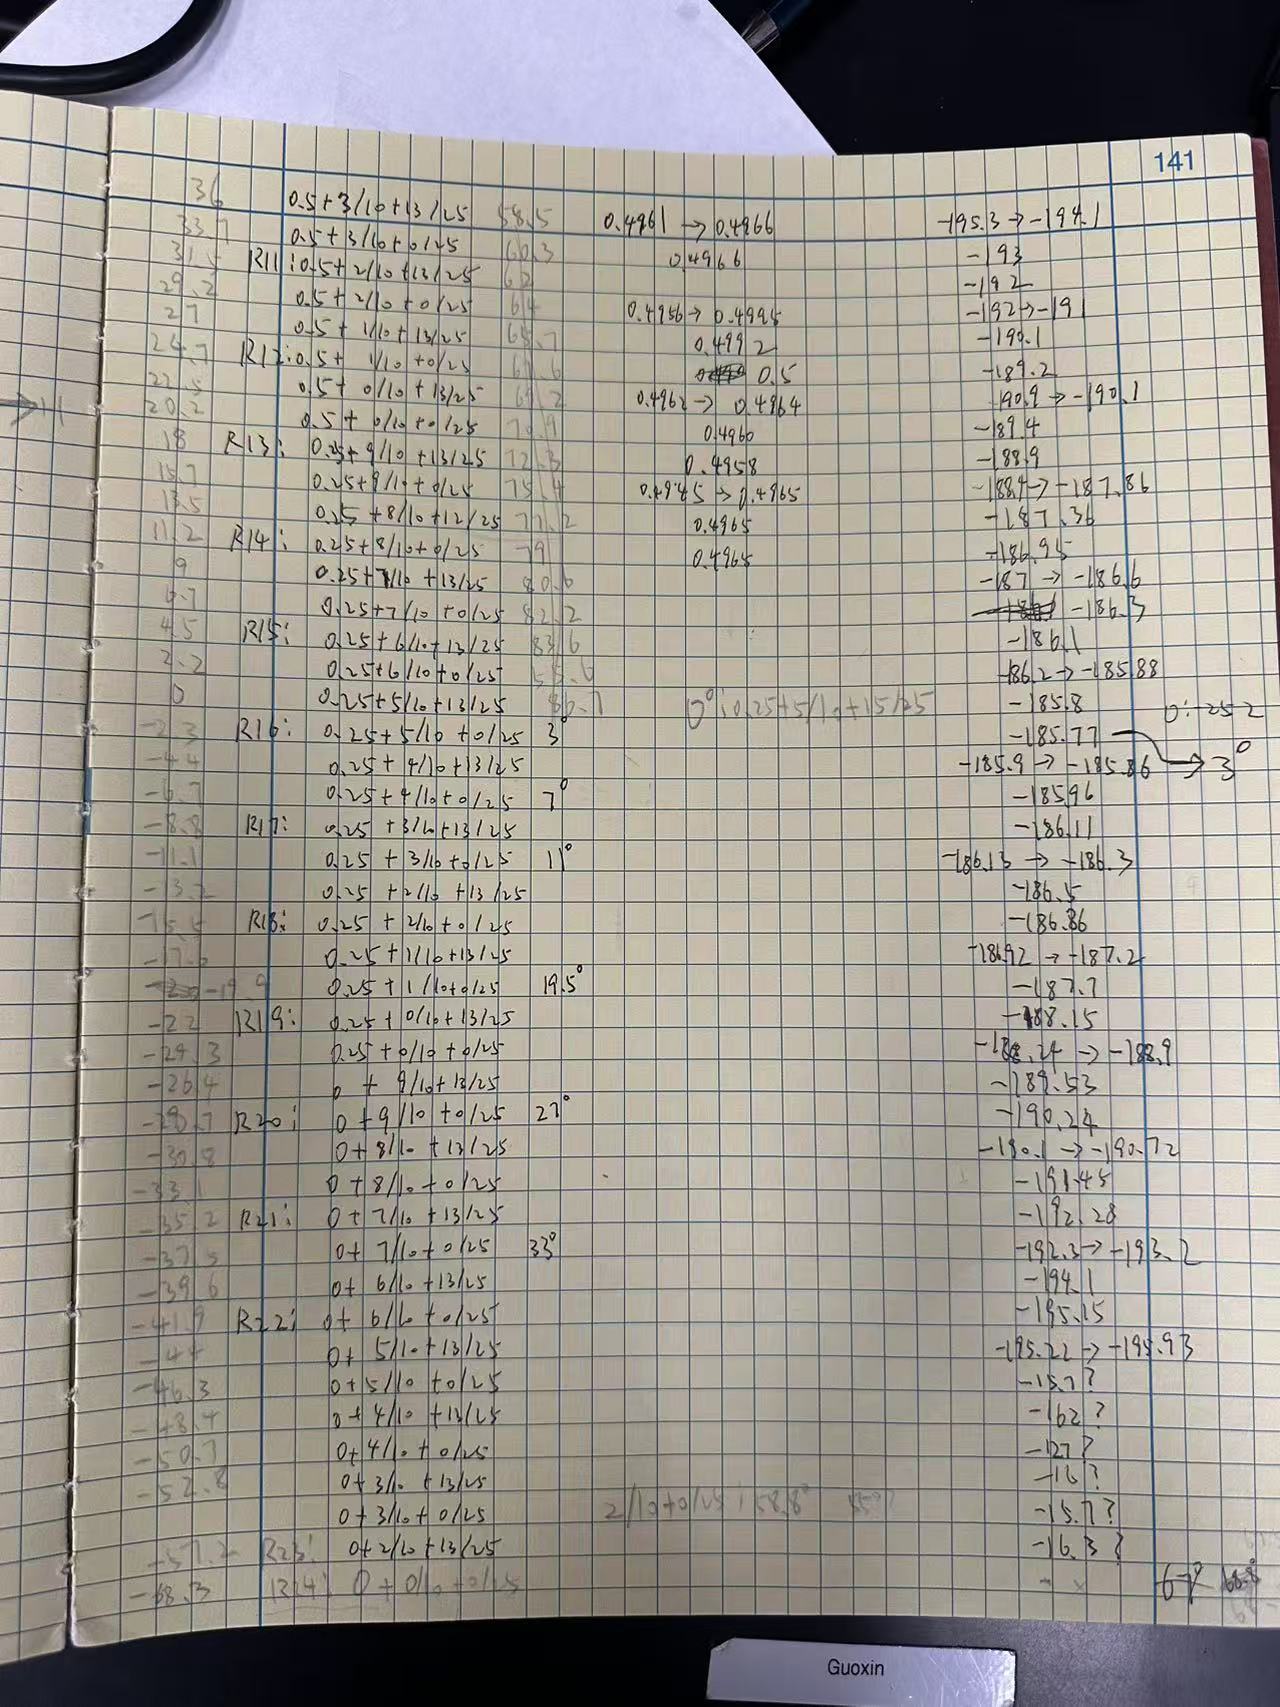 141
36 0.5+3/10+13/25 58.5 0.4961 → 0.4966 -195.3 → -194.1
33.7 0.5+3/10+0/25 60.3 0.4966 -193
R11: 0.5+2/10+13/25 62 -192
29.2 0.5+2/10+0/25 64 0.4956 → 0.4995 -192 → -191
27 0.5+1/10+13/25 65.7 0.4992 -190.1
24.7 R12: 0.5+1/10+0/25 0.5 -189.2
22.5 0.5+0/10+13/25 0.4962 → 0.4964 -190.9 → -190.1
20.2 0.5+0/10+0/25 70.9 0.4960 -189.4
18 R13: 0.25+9/10+13/25 72.3 0.4958 -188.9
15.7 0.25+9/10+0/25 75.4 0.4945 → 0.4965 -188.4 → -187.86
13.5 0.25+8/10+12/25 77.2 0.4965 -187.36
11.2 R14: 0.25+8/10+0/25 79 0.4965 -186.95
9 0.25+7/10+13/25 80.6 -187 → -186.6
6.7 0.25+7/10+0/25 82.2 -186.3
4.5 R15: 0.25+6/10+13/25 83.6 -186.1
2.2 0.25+6/10+0/25 -186.2 → -185.88
0 0.25+5/10+13/25 86.7 0°: 0.25+5/10+15/25 -185.8 0: -25.2
-2.3 R16: 0.25+5/10+0/25 3° -185.77
-4.4 0.25+4/10+13/25 -185.9 → -185.86 → 3°
-6.7 0.25+4/10+0/25 7° -185.96
-8.8 R17: 0.25+3/10+13/25 -186.11
-11.1 0.25+3/10+0/25 11° -186.13 → -186.3
-13.2 0.25+2/10+13/25 -186.5
-15.5 R18: 0.25+2/10+0/25 -186.86
-17.6 0.25+1/10+13/25 -186.92 → -187.2
-19.9 0.25+1/10+0/25 19.5° -187.7
-22 R19: 0.25+0/10+13/25 -188.15
-24.3 0.25+0/10+0/25 -188.24 → -188.9
-26.4 0+9/10+13/25 -189.53
-28.7 R20: 0+9/10+0/25 27° -190.24
-30.8 0+8/10+13/25 -190.1 → -190.72
-33.1 0+8/10+0/25 -191.45
-35.2 R21: 0+7/10+13/25 -192.28
-37.5 0+7/10+0/25 33° -192.3 → -193.2
-39.6 0+6/10+13/25 -194.1
-41.9 R22: 0+6/10+0/25 -195.15
-44 0+5/10+13/25 -195.22 → -195.93
-46.3 0+5/10+0/25 -15.7?
-48.4 0+4/10+13/25 -162?
-50.7 0+4/10+0/25 -127?
-52.8 0+3/10+13/25 -16?
0+3/10+0/25 2/10+0/25: 58.8° -15.7?
-57.2 R23: 0+2/10+13/25 -16.3?
-68.3 R24: 0+0/10+0/25 - x 67°
Guoxin